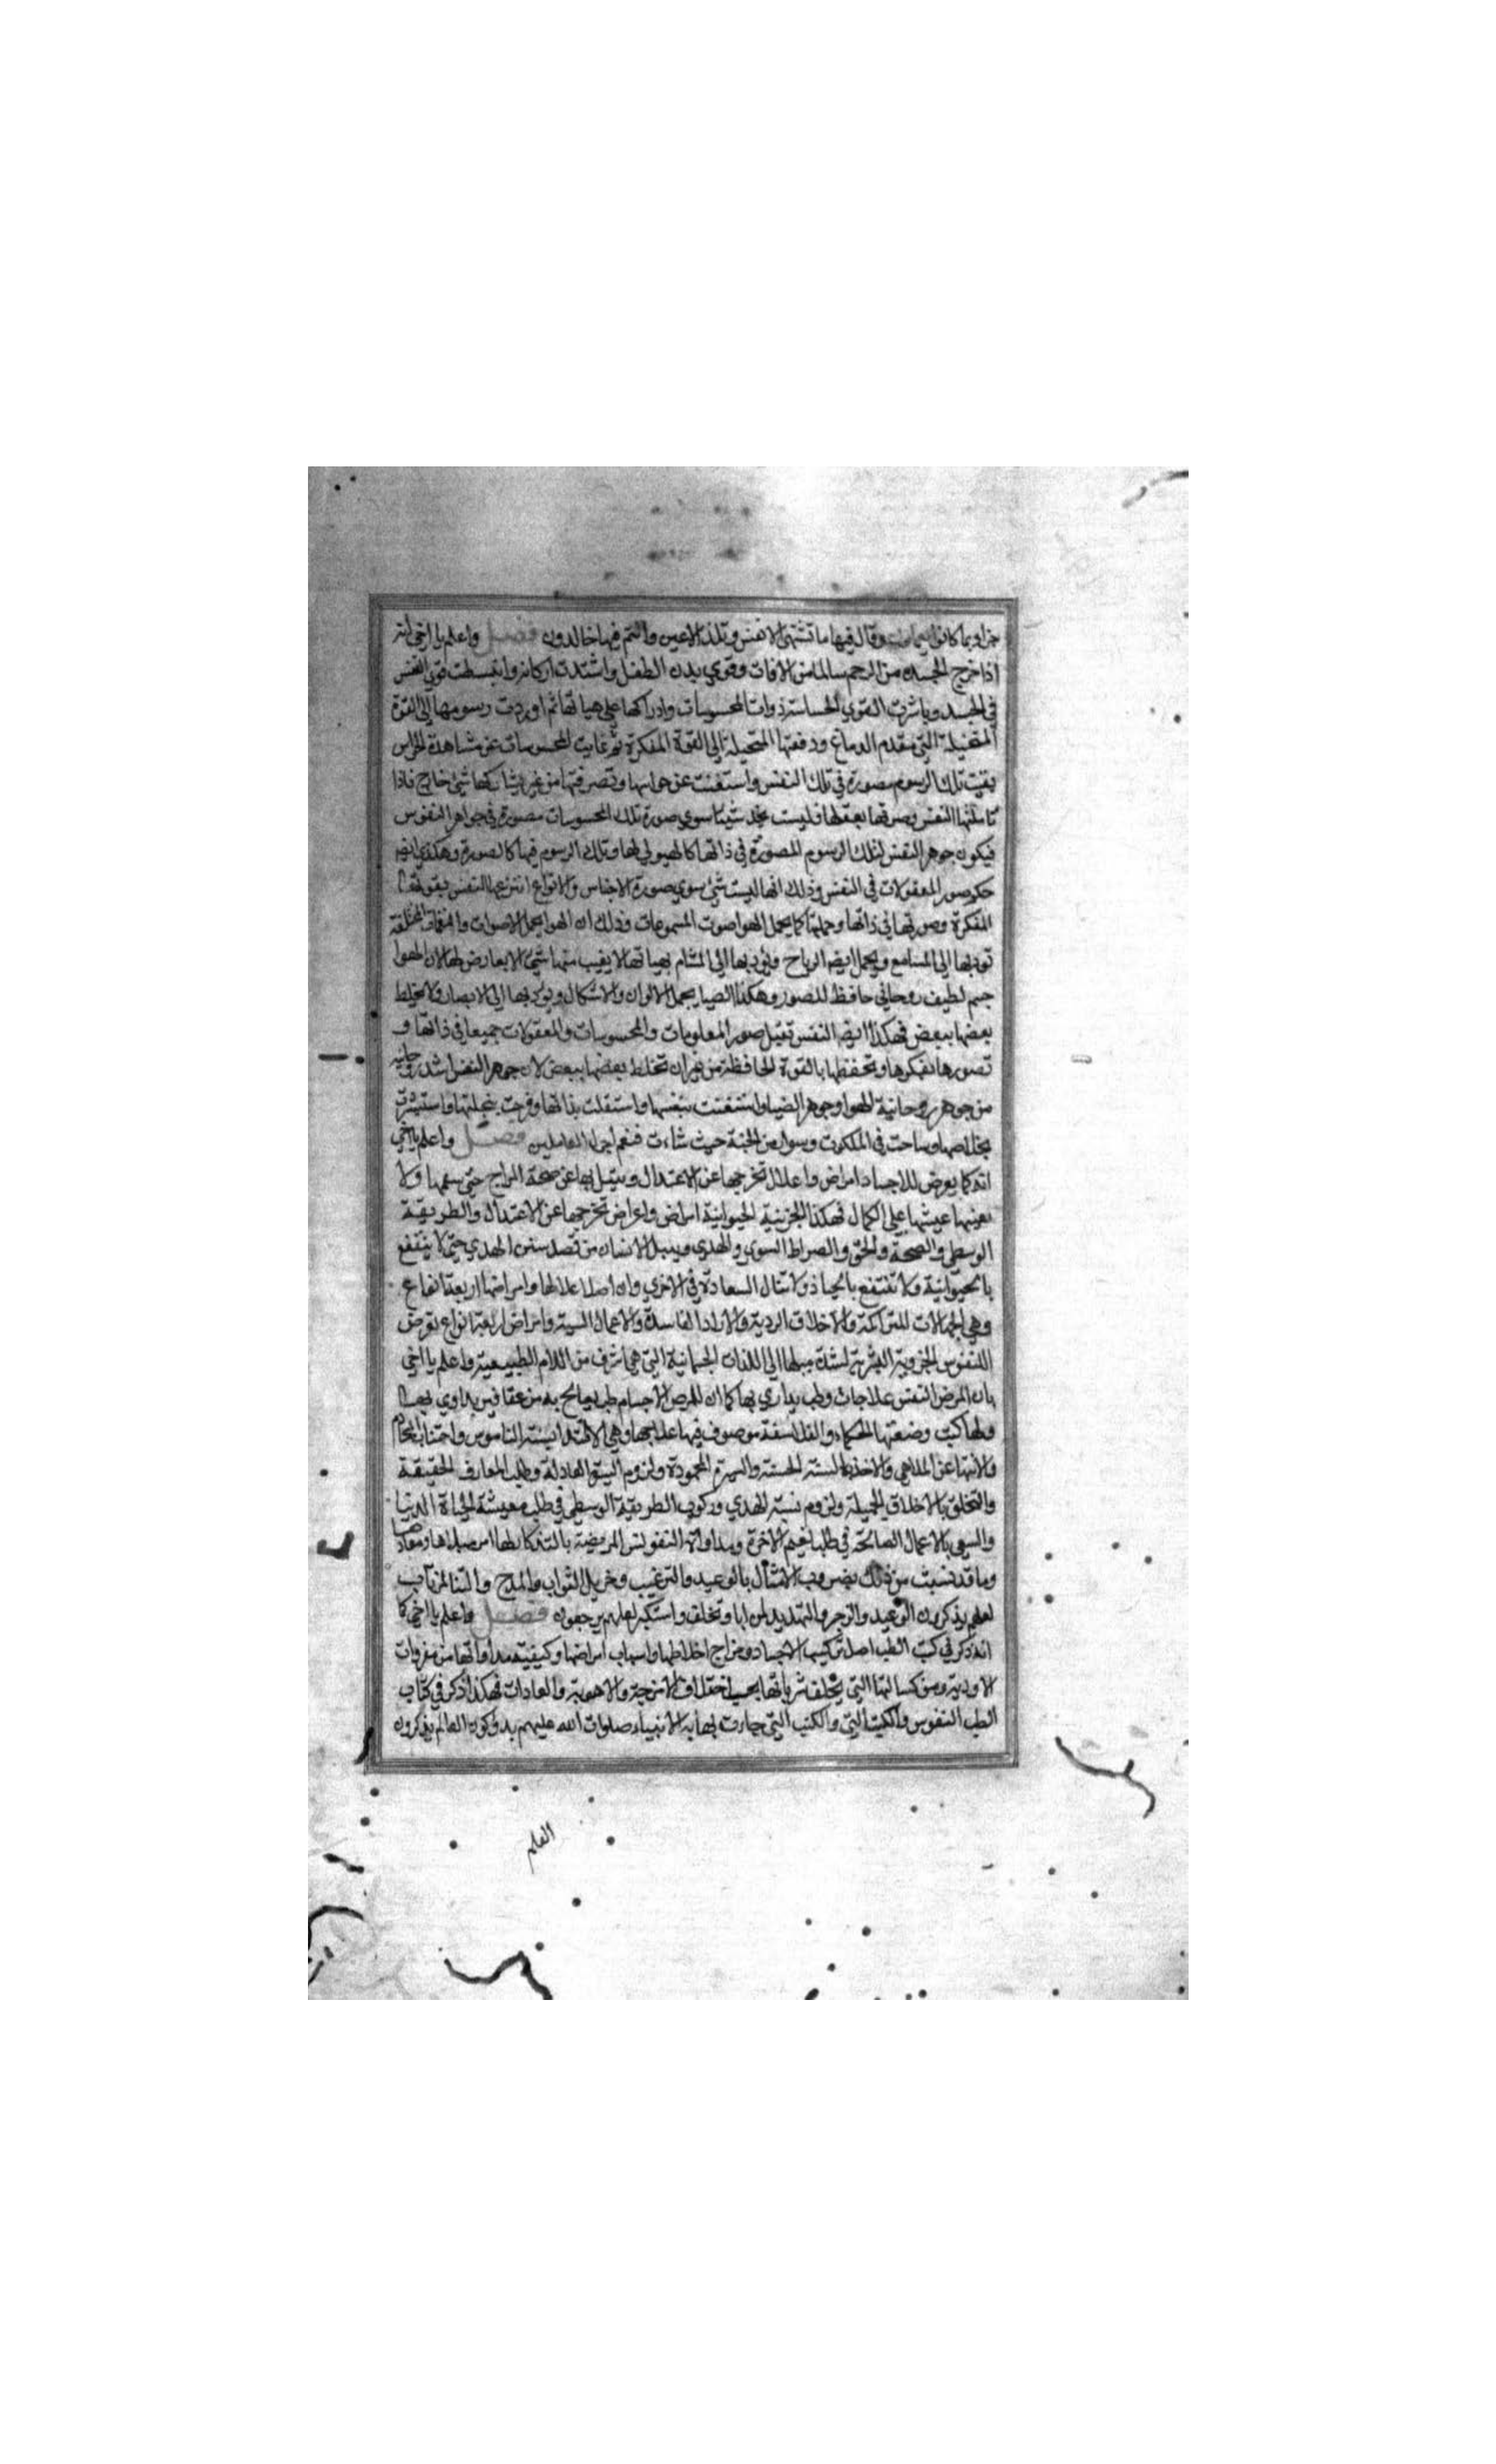 جزاء بما كانوا يعملون وقال فيها ما تشتهي الانفس وتلذ الاعين وانتم فيها خالدون فصل واعلم يا اخي انه
اذا خرج الجسد من الرحم سالما من الافات وقوي بدن الطفل واشتدت اركانه وانبسطت قوي النفس
في الجسد وباشرت القوي الحساسة ذوات المحسوسات وادراكها علي هياتها ثم اوردت رسومها الي القوة
المتخيلة التي مقدم الدماغ ودفعتها المتخيلة الي القوة المفكرة ثم غابت المحسوسات عن مشاهدة الحواس
بقيت تلك الرسوم مصورة في تلك النفس واستغنت عن حواسها وتصرفتها من غير شي خارج فاذا
تاملتها النفس بعقلها فليست تجد شيئا سوي صورة تلك المحسوسات مصورة في جواهر النفوس
فيكون جوهر النفس لتلك الرسوم المصورة في ذاتها كالهيولي لها وتلك الرسوم فيها كالصورة وهكذي ايضا
حكم صور المعقولات في النفس وذلك انها ليست شي سوي صورة الاجناس والانواع انتزعها النفس بقوتها
المفكرة وصورتها في ذاتها وحملتها كما يحمل الهوا صوت المسموعات وذلك ان الهوا يحمل الاصوات المختلفة
توديها الي المسامع ويحمل ايضا الرياح ويوديها الي المشام بهياتها لا يغيب منها شي الا بعارض لها لان الهوا
جسم لطيف روحاني حافظ للصور وهكذا الضيا يحمل الالوان والاشكال ويوديها الي الابصار ولا يخلط
بعضها ببعض فهكذا ايضا النفس تقبل صور المعلومات والمحسوسات والمعقولات جميعا في ذاتها و
تصورها بفكرها وتحفظها بالقوة الحافظة من غير ان تختلط بعضها ببعض لان جوهر النفس اشد روحانيه
من جوهر روحانية الهوا وجوهر الضيا واستغنت بنفسها واستقلت بذاتها وفرحت بنجاتها واستبشرت
بخلاصها وساحت في الملكوت من الجنة حيث شاءت فنعم اجر العاملين فصل واعلم يا اخي
انه كما يعرض للاجساد امراض واعلال تخرجها عن الاعتدال وتميل بها عن صحة المزاج حتي ولا
عيشها علي الكمال فهكذا الجزئية الحيوانية امراض واعراض تخرجها عن الاعتدال والطريقة
الوسطي والصحة والحق والصراط السوي والهدي ويميل الانسان من قصد سنن الهدي حتي لا ينتفع
بالحيوانية ولا تنتفع بالحياة ولا تنال السعادة في الاخري وان اصل اعلالها وامراضها اربعة انواع
وهي الجهالات المتراكمة والاخلاق الردية والارا الفاسدة والاعمال السيئة وامراض اربعة انواع تعرض
للنفوس الجزوية البشرية لشدة ميلها الي اللذات الجسمانية التي هي اشرف من اللام الطبيعية واعلم يا اخي
بان لمرض النفس علاجات وطب يداوي بها كما ان لمرض الاجسام طب يعالج به من عقاقير يداوي بها
ولها كتب وضعتها الحكماء والفلاسفة موصوف فيها علاجها وهي الاقتدا بسنة الناموس واجتناب المحارم
والانتها عن الملاهي والاخذ بالسنة الحسنة والسيرة المحمودة ولزوم السير العادلة وطلب المعارف الحقيقة
والتخلق بالاخلاق الجميلة ولزوم سنة الهدي وركوب الطريقة الوسطي في طلب معيشة الحياة الدنيا
والسعي بالاعمال الصالحة في طلب نعيم الاخرة ومداواة النفوس المريضة بالتذكار لها امر مبداها ومعادها
وما قد نسيت من ذلك بضروب الامثال بالوعيد والترغيب وجزيل الثواب والمدح والثنا لمن تاب
لعلهم يذكرون الوعيد والزجر والتهديد لمن ابا وتخلف واستكبر لعلهم يرجعون فصل واعلم يا اخي كما
انه ذكر في كتب الطب اصل تركيب الاجساد ومزاج اخلاطها واسباب امراضها وكيفية مداواتها من مفردات
الادوية التي يختلف شرباتها بحسب اختلاف الامزجة والاهوية والعادات فهكذا ذكر في كتاب
الطب النفوس والكتب التي والكتب التي جاءت بها به الانبياء صلوات الله عليهم بدو كون العالم يذكرون
العلم